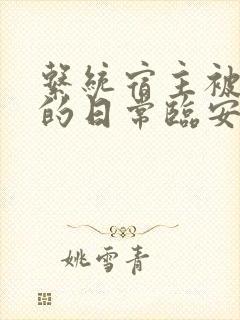 繫統宿主被
的日常臨安
姚雪青